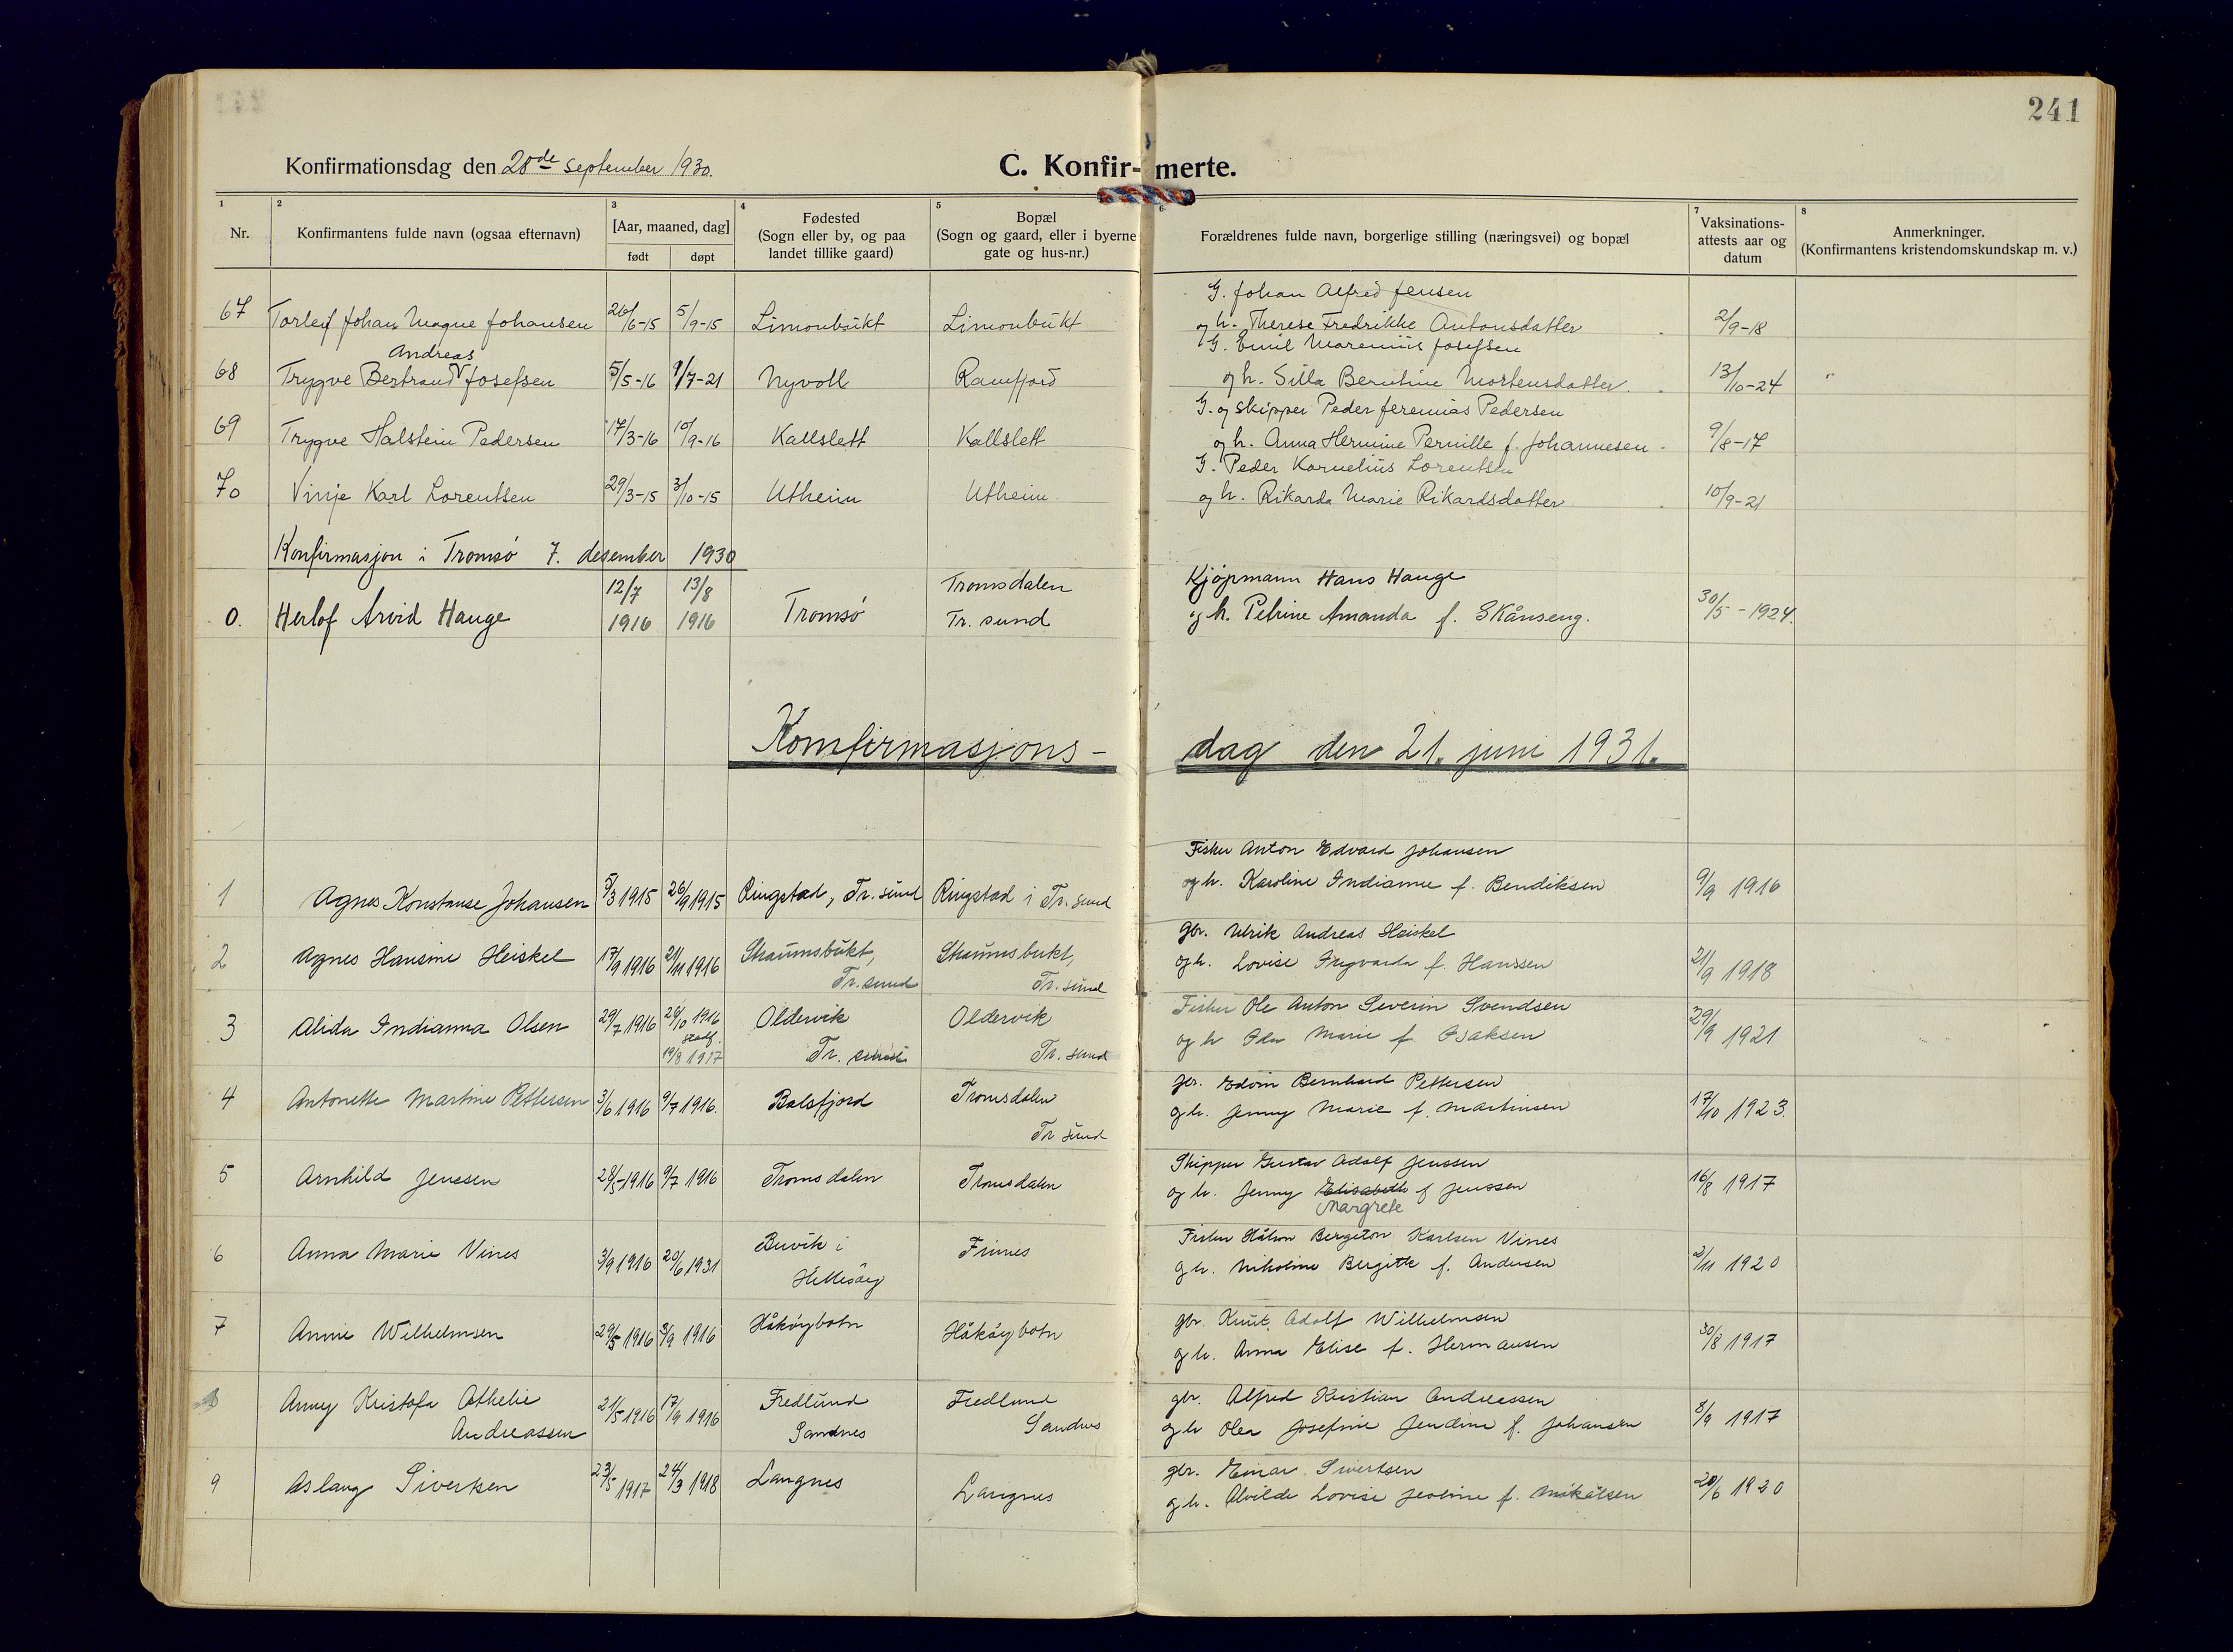 241
Konfirmationsdag den 28de september 1930.
C. Konfir- merte.
1 2 3 4 5 6 7 8
Nr.
Konfirmantens fulde navn (ogsaa efternavn)
[Aar, maaned, dag]
født døpt
Fødested
(Sogn eller by, og paa
landet tillike gaard)
Bopæl
(Sogn og gaard, eller i byerne
gate og hus-nr.)
Forældrenes fulde navn, borgerlige stilling (næringsvei) og bopæl
Vaksinations-
attests aar og
datum
Anmerkninger.
(Konfirmantens kristendomskundskap m. v.)
G. Johan Alfred Jensen
67 Torleif Johan Magne Johansen 26/6-15 5/9-15 Limonbukt Limonbukt og h. Therese Fredrikke Antonsdatter 2/9-18
Andreas
G. Emil Marenius Josefsen
68 Trygve Bertrand Josefsen 5/5-16 /7-21 Nyvoll Ramfjord og h. Silla Berntine Mortensdatter. 13/10-24 "
G. og skipper Peder Jeremias Pedersen
69 Trygve Halstein Pedersen 17/3-16 10/9-16 Kallslett Kallslett og h. Anna Hermine Pernille f. Johannesen 9/8-17
G. Peder Kornelius Lorentsen
70 Vinje Karl Lorentsen 29/3-15 3/10-15 Utheim Utheim og h. Rikarda Marie Rikardsdatter 10/9-21
Konfirmasjon i Tromsö 7. desember 1930
12/7 13/8 Tromsdalen Kjöpmann Hans Hauge
0. Herlof Arvid Hauge 1916 1916 Tromsö Tr. sund og h. Petrine Amanda f. Skånseng. 30/5-1924.
Komfirmasjons- dag den 21. juni 1931.
Fisker Anton Edvard Johansen
1 Agnes Konstanse Johansen 5/3 1915 26/9 1915 Ringstad, Tr. sund Ringstad i Tr. sund og h. Karoline Indianne f. Bendiksen 9/9 1916
gbr. Ulrik Andreas Heiskel
2 Agnes Hansine Heiskel 17/9 1916 21/11 1916 Skaumsbukt, Skaumsbukt, og h. Lovise Ingvarda f. Hanssen 21/9 1918
Tr. sund Tr. sund
Fisker Ole Anton Severin Svendsen
3 Alida Indianna Olsen 29/7 1916 29/10 1916 Oldervik Oldervik og h. Marie f. Isaksen 29/9 1921
Stadf.
19/8 1917 Tr. sund Tr. sund
gbr. Edvin Bernhard Pettersen
4 Antonette Martine Pettersen 3/6 1916 9/7 1916. Balsfjord Tromsdalen og h. Jenny Marie f. Martinsen 17/10 1923.
Tr sund
Skipper Gustav Adolf Jenssen
5 Arnhild Jenssen 28/5-1916 9/7 1916 Tromsdalen Tromsdalen og h. Jenny Elisabeth f Jenssen 16/8 1917
Margrete
Fisker Håkon Bergeton Karlsen Vines
6 Anna Marie Vines 3/9 1916 20/6 1931 Buvik i Finnes og h. Nikoline Bergitte f. Andersen 2/11 1920
Hillesöy
gbr. Knut Adolf Wilhelmsen
7 Annie Wilhelmsen 29/5 1916 3/9 1916 Håköybotn Håköybotn og h. Anna Elise f. Hermansen 30/8 1917
gbr. Alfred Kristian Andreassen
8 Anny Kristofa Othelie 21/5 1916 17/9 1916 Fredlund Fredlund og h Olea Josefine Jendine f. Johansen 8/9 1917
Andreassen Sandnes Sandnes
gbr. Einar Sivertsen
9 Aslaug Sivertsen 23/5 1917 24/3 1918 Langnes Langnes og h. Alvilde Lovise Jesline f. Mikalsen 20/6 1920